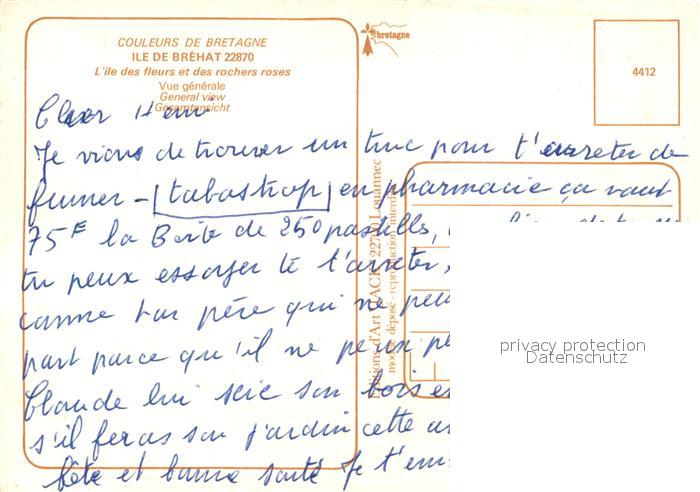 COULEURS DE BRETAGNE
ILE DE BRÉHAT 22870
L'île des fleurs et des rochers roses
Vue générale
General view
Gesamtansicht
bretagne
4412
Cher
Je viens de trouver un truc pour t'arreter de
fumer - tabastop en pharmacie ça vaut
75F la Boite de 250 pastills,
tu peux essayer te t'arreter,
comme ton père qui ne peu
part parce qu'il ne peux
Claude lui scie son bois
s'il feras son jardin cette
fête et bonne santé Je t'em
privacy protection
Datenschutz